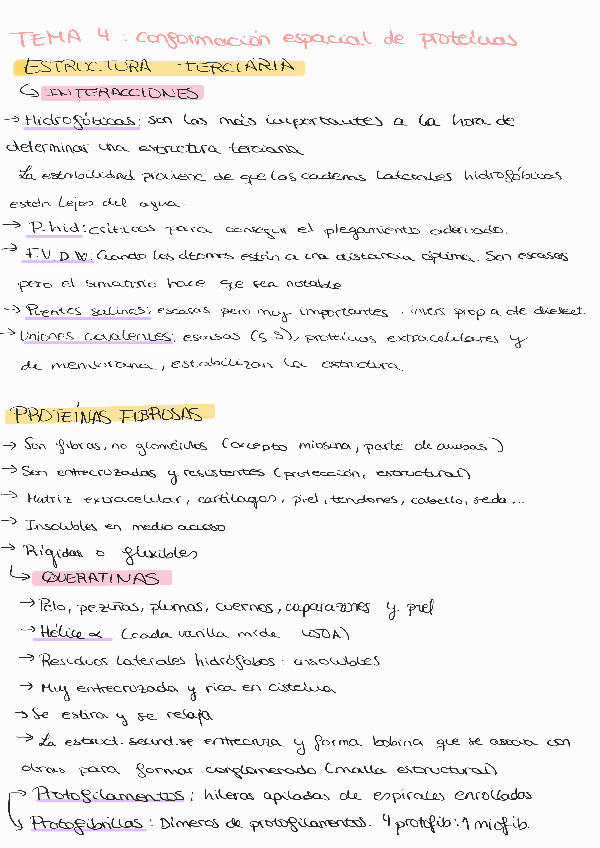 TEMA 4 : conformación espacial de proteínas
ESTRUCTURA TERCIARIA
↳ INTERACCIONES
→ Hidrofóbicas: son las más importantes a la hora de
determinar una estructura terciaria
La estabilidad proviene de que las cadenas laterales hidrofóbicas
están lejos del agua.
→ P.hid: críticos para conseguir el plegamiento adecuado.
→ F.V.D.W. Cuando los átomos están a una distancia óptima. Son escasas
pero el sumatorio hace que sea notable
→ Puentes salinos: escasos pero muy importantes · invers prop a cte dieléct.
→ Uniones covalentes: escasas (S.S), proteínas extracelulares y
de membrana, estabilizan la estructura.
PROTEÍNAS FIBROSAS
→ Son fibras, no glomérulos (excepto miosina, parte de )
→ Son entrecruzadas y resistentes (protección, estructural)
→ Matriz extracelular, cartílagos, piel, tendones, cabello, seda...
→ Insolubles en medio acuoso
→ Rígidas o flexibles
↳ QUERATINAS
→ Pelo, pezuñas, plumas, cuernos, caparazones y piel
→ Hélice α (cada varilla mide 450A)
→ Residuos laterales hidrófobos · insolubles
→ Muy entrecruzada y rica en cisteína
→ Se estira y se relaja
→ La estruct. secund. se entrecruza y forma bobina que se asocia con
otras para formar conglomerado (malla estructural)
→ Protofilamentos : hileras apiladas de espirales enrollados
↳ Protofibrillas : Dímeros de protofilamentos. 4 protofib : 1 microfib.